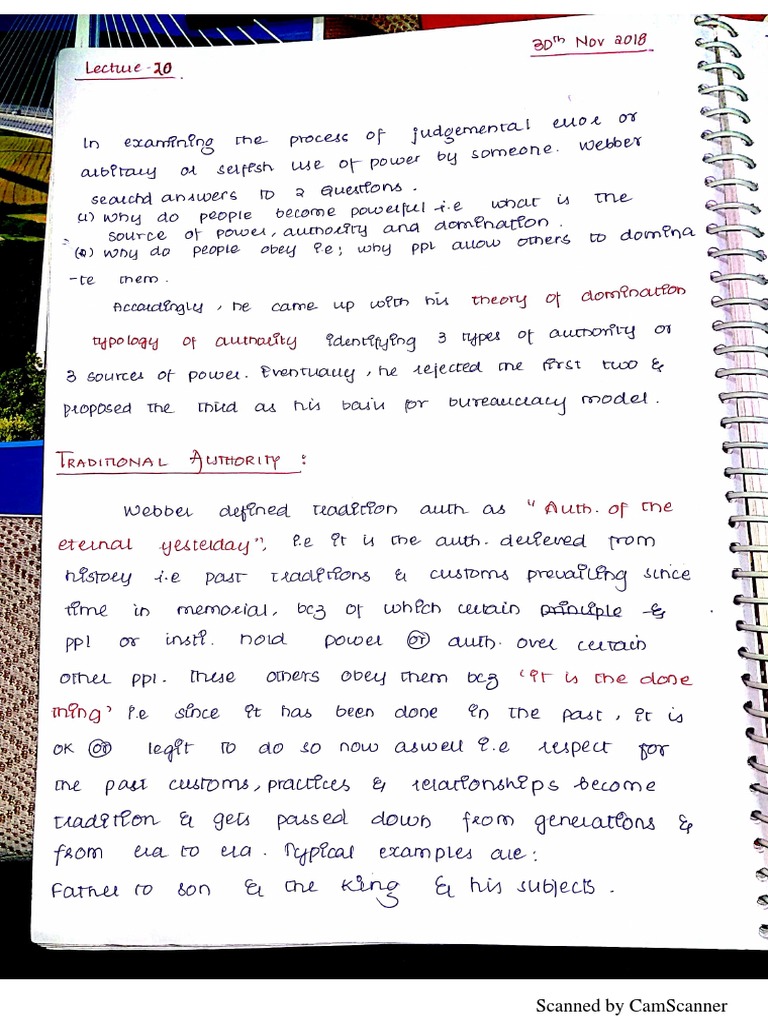 30th Nov 2018
Lecture-20
In examining the process of judgemental error or
arbitrary or selfish use of power by someone. Webber
searchd answers to 2 Questions.
(1) Why do people become powerful i.e what is the
source of power, authority and domination.
(2) Why do people obey i.e; why ppl allow others to domina
-te them.
Accordingly, he came up with his theory of domination
typology of authority identifying 3 types of authority or
3 sources of power. Eventually, he rejected the first two &
proposed the third as his basis for bureaucracy model.
TRADITIONAL AUTHORITY :
Webber defined tradition auth as "Auth. of the
eternal yesterday", i.e it is the auth. derieved from
history i.e past traditions & customs prevailing since
time in memorial, bcz of which certain principle &
ppl or insti. hold power or auth. over certain
other ppl. These others obey them bcz 'it is the done
thing' i.e since it has been done in the past, it is
ok or legit to do so now aswell i.e respect for
the past customs, practices & relationships become
tradition & gets passed down from generations &
from era to era. Typical examples are:
Father to son & the King & his subjects.
Scanned by CamScanner